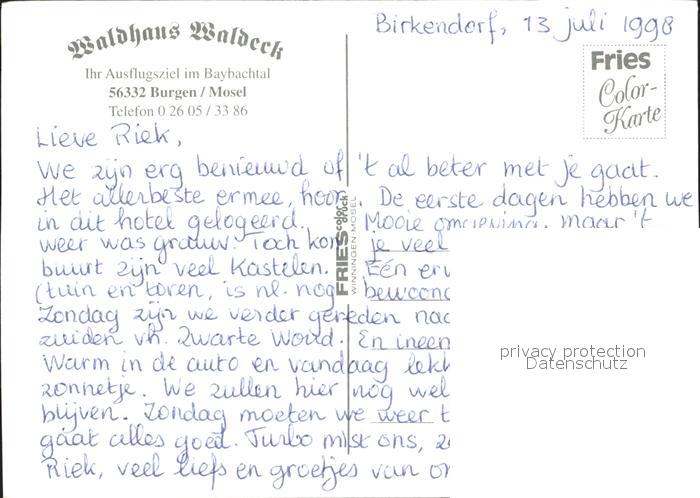 Birkendorf, 13 juli 1998
Waldhaus Waldeck
Ihr Ausflugsziel im Baybachtal
56332 Burgen / Mosel
Telefon 0 26 05 / 33 86
Fries
Color-
Karte
Lieve Riek,
We zijn erg benieuwd of 't al beter met je gaat.
Het allerbeste ermee, hoor. De eerste dagen hebben we
in dit hotel gelogeerd. Mooie omgeving, maar 't
weer was grauw. Toch kon je veel
buurt zijn veel Kastelen. Eén
(tuin en toren, is nl. nog
Zondag zijn we verder gereden
zuiden vh. Zwarte Woud. En ineen
Warm in de auto en vandaag
zonnetje. We zullen hier nog wel
blijven. Zondag moeten we weer
gaat alles goed. Turbo mist ons,
Riek, veel liefs en groetjes van
FRIES color druck
WINNINGEN-MOSEL
privacy protection
Datenschutz